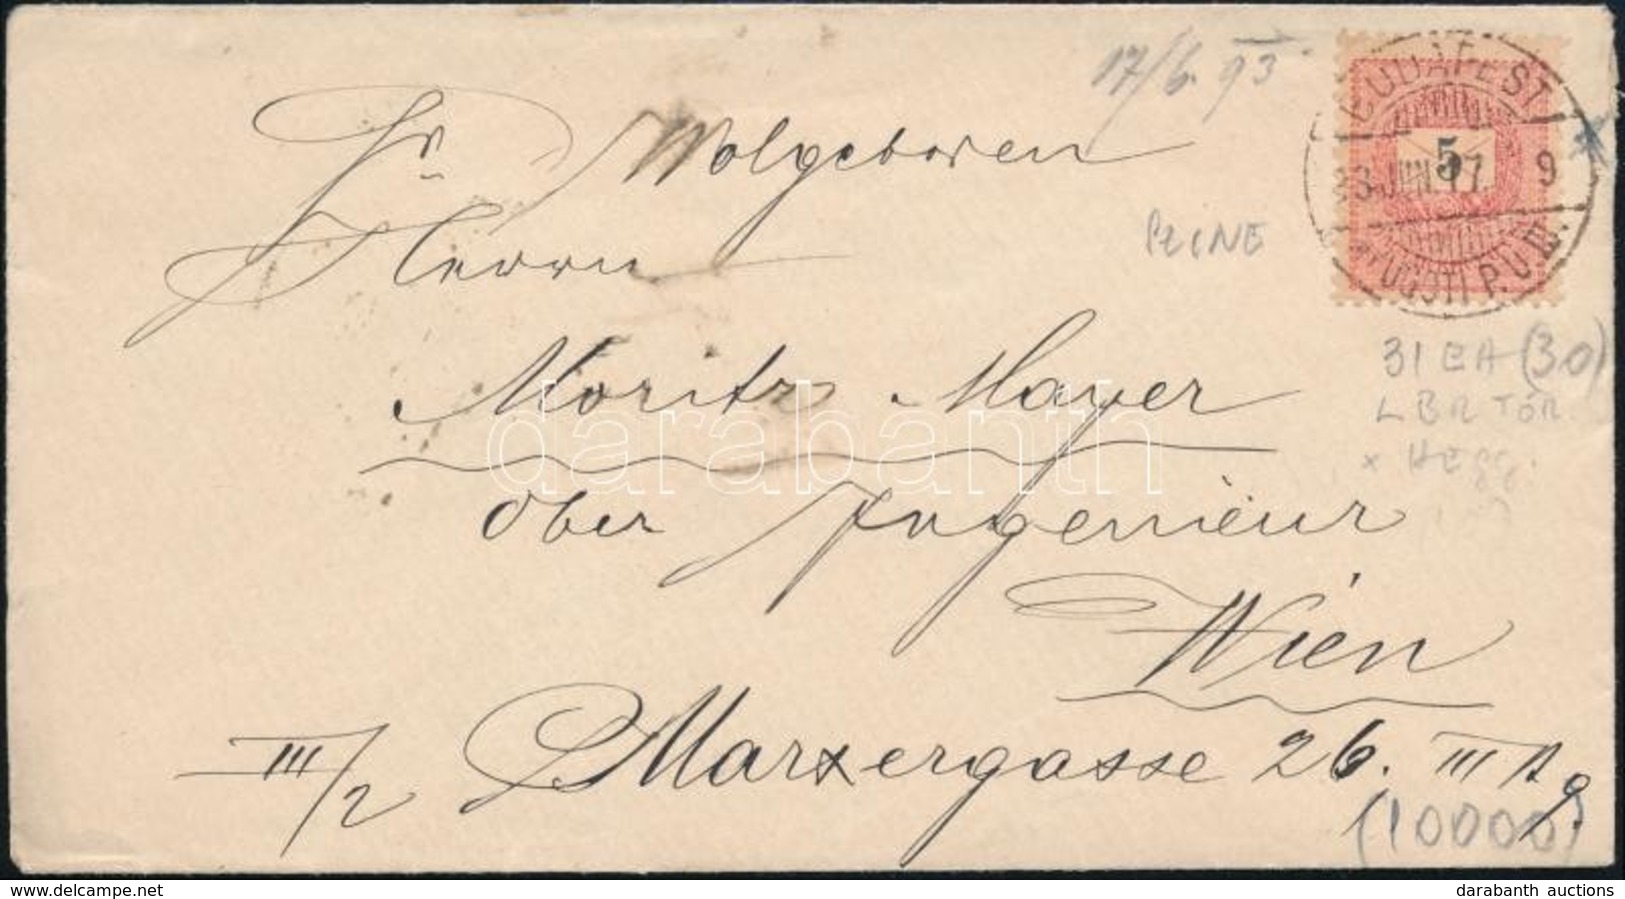 17/6. 93.
Sr Wolgeboren
Herrn
Moritz Mayer
Ober Ingenieur
Wien
III/2 Marxergasse 26. III
BUDAPEST
5
93 JUN 17. 9
NYUGOTI P.U.
31 EA (30)
(10000)
darabanth
www.delcampe.net
darabanth auctions